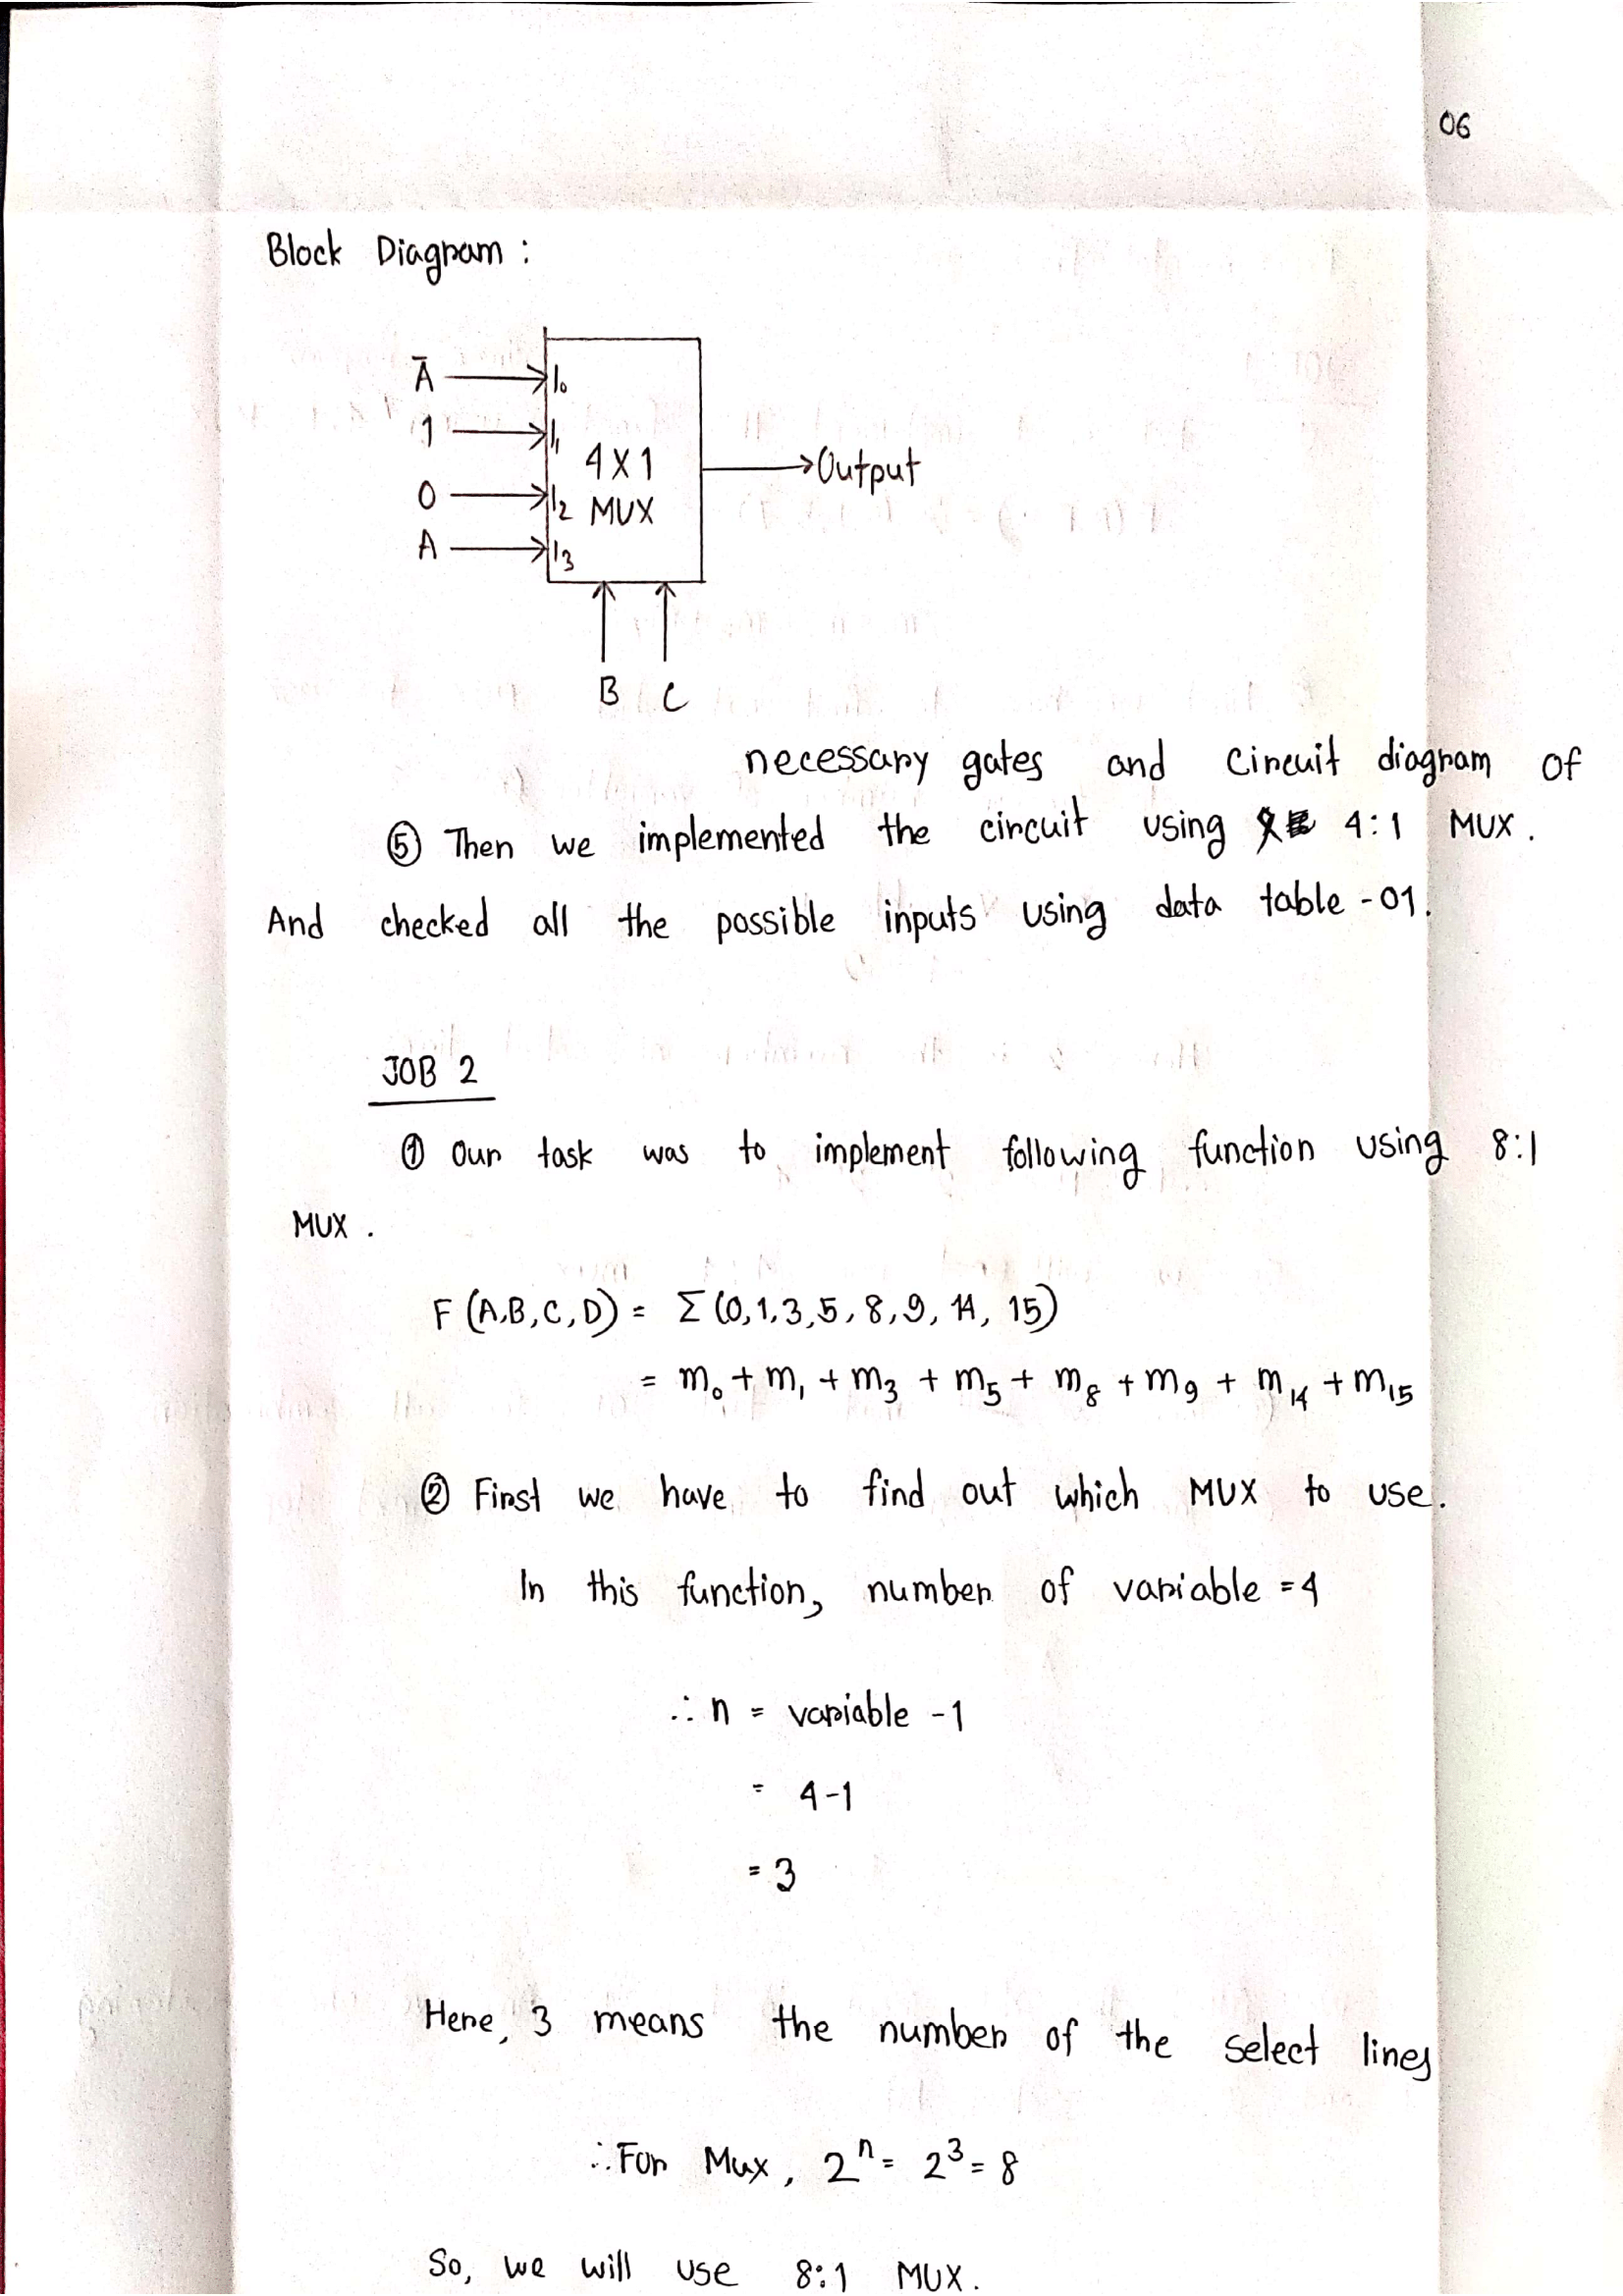 06
Block Diagram :
Ā
I0
1
I1
4X1
0
I2 MUX
A
I3
Output
B C
necessary gates and circuit diagram of
⑤ Then we implemented the circuit using 4:1 MUX.
And checked all the possible inputs using data table -01.
JOB 2
① Our task was to implement following function using 8:1
MUX .
F (A,B,C,D) = Σ (0,1,3,5,8,9,14, 15)
= m₀ + m₁ + m₃ + m₅ + m₈ + m₉ + m₁₄ + m₁₅
② First we have to find out which MUX to use.
In this function, number of variable = 4
∴ n = variable -1
= 4-1
= 3
Here, 3 means the number of the select lines
∴ For Mux, 2ⁿ = 2³ = 8
So, we will use 8:1 MUX.